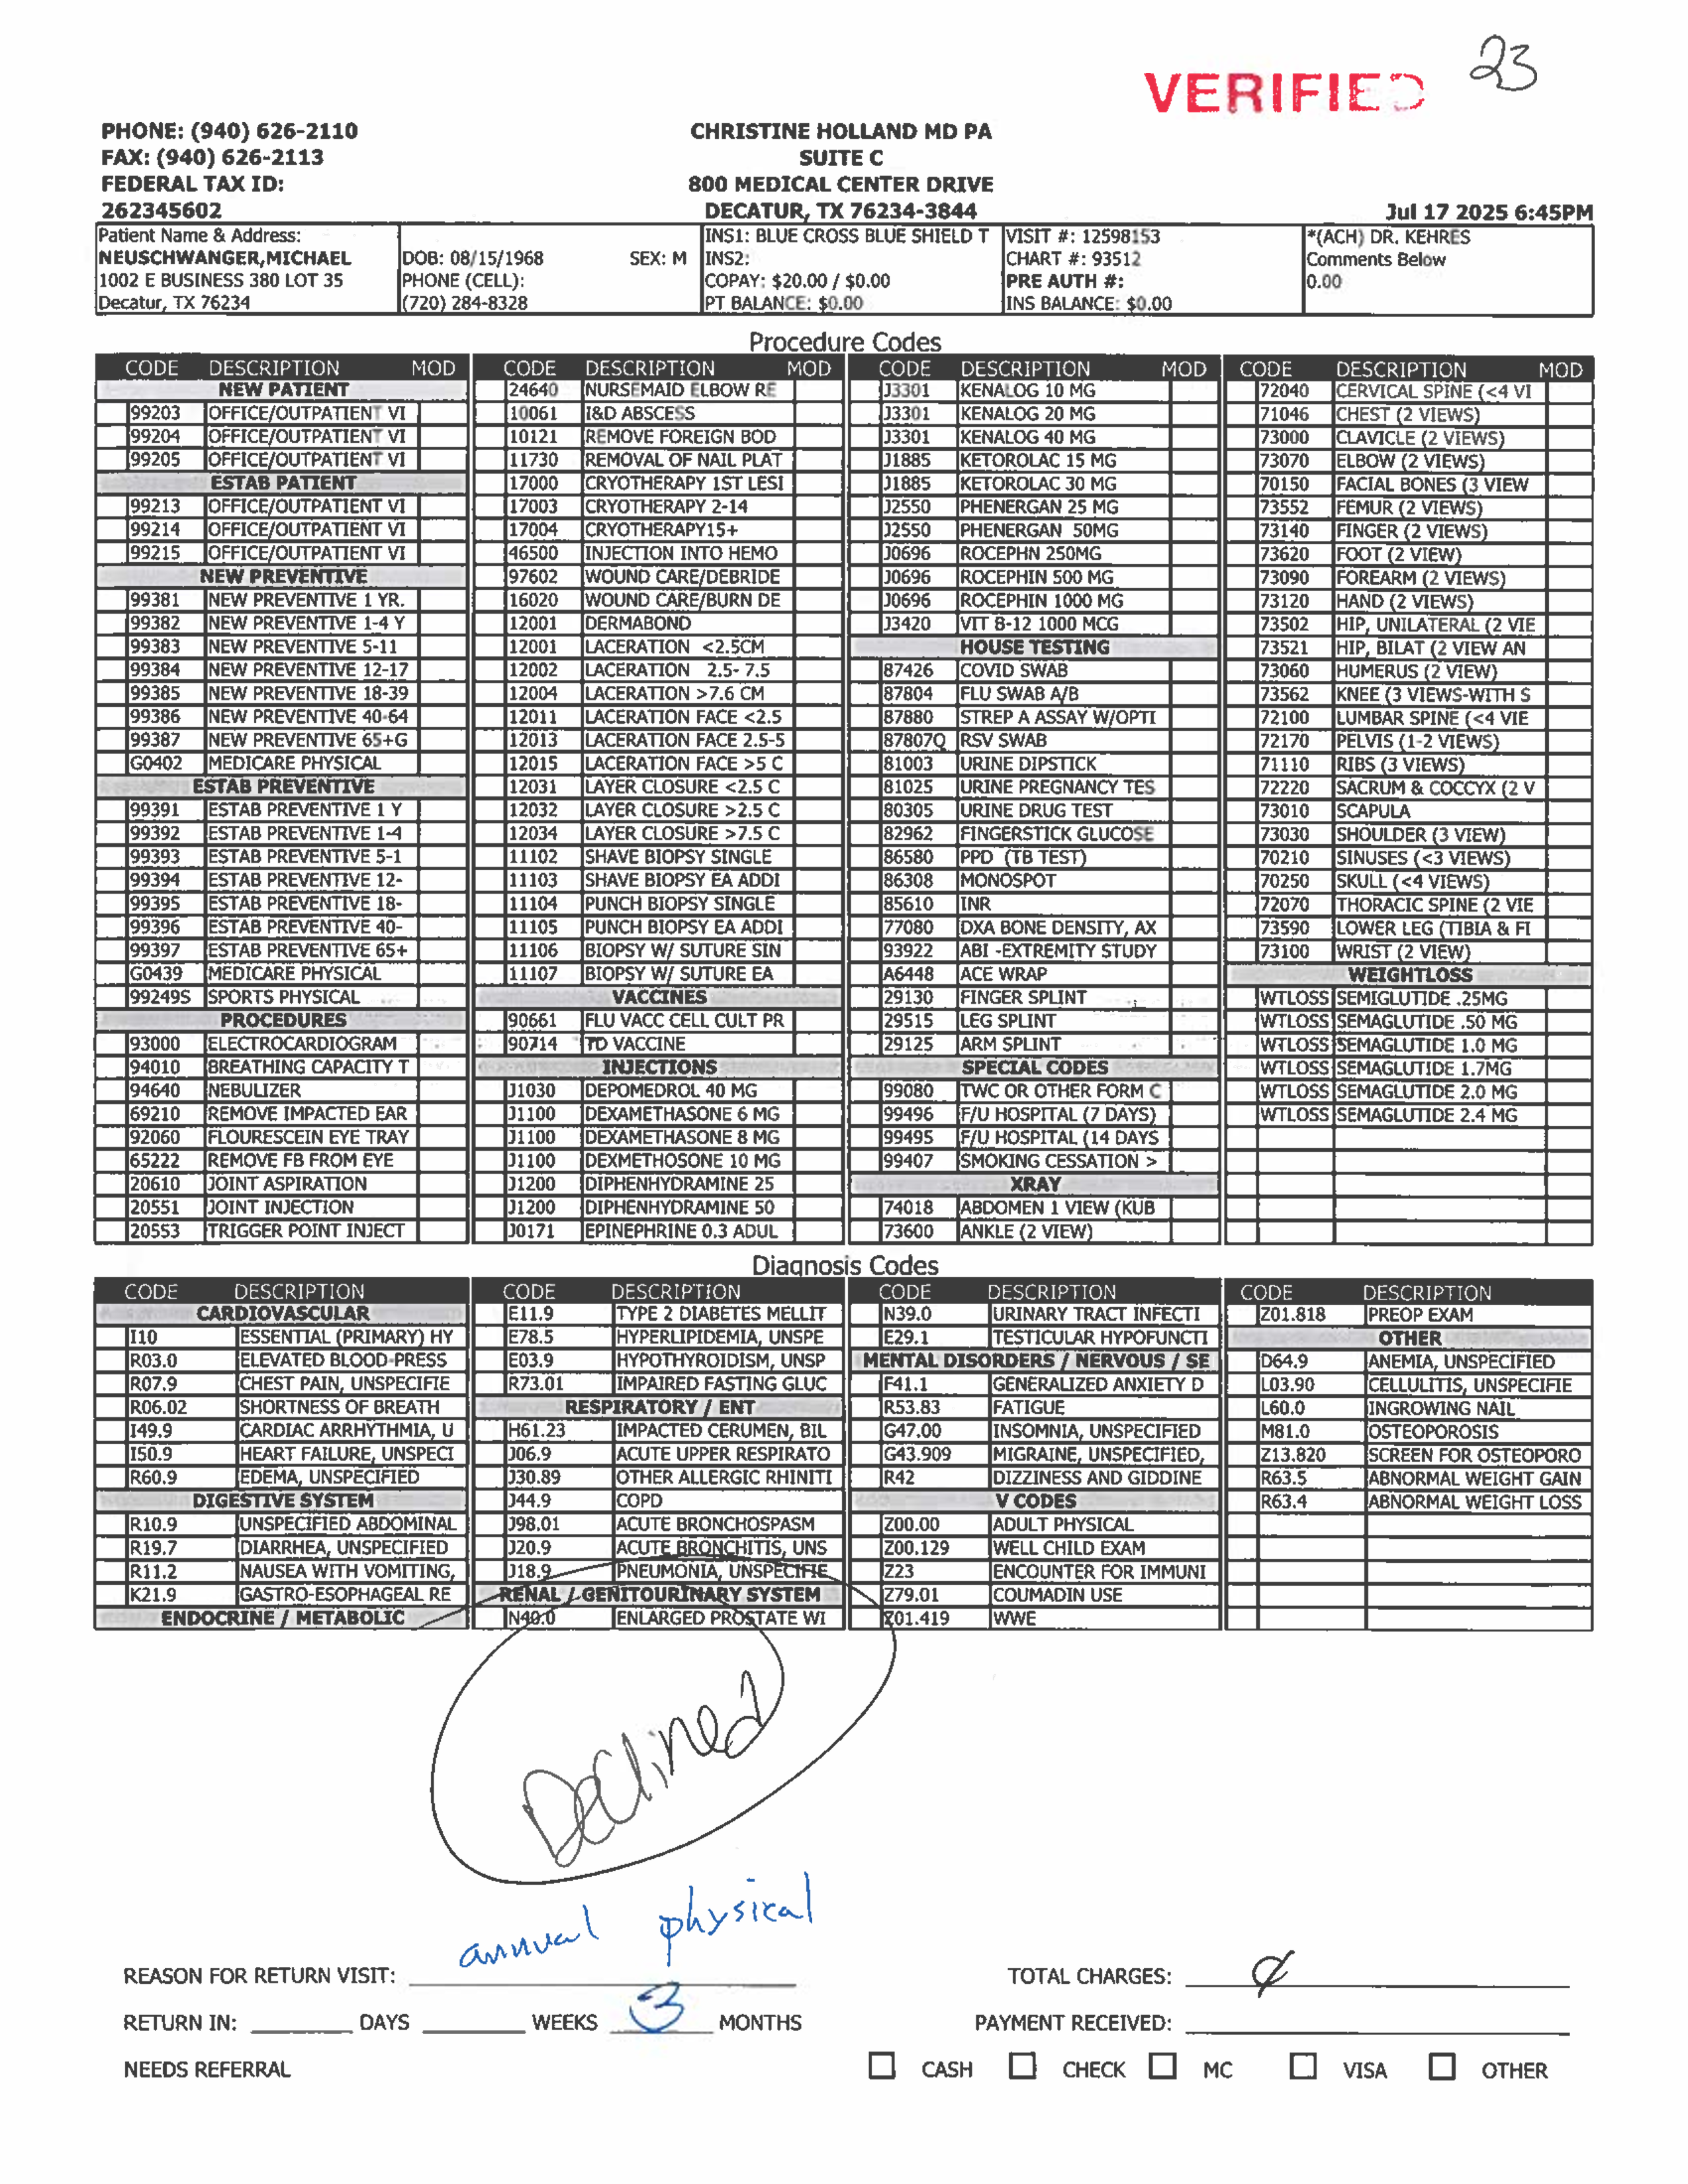 23
VERIFIED
PHONE: (940) 626-2110
FAX: (940) 626-2113
FEDERAL TAX ID:
262345602
CHRISTINE HOLLAND MD PA
SUITE C
800 MEDICAL CENTER DRIVE
DECATUR, TX 76234-3844
Jul 17 2025 6:45PM
Patient Name & Address:
NEUSCHWANGER,MICHAEL
1002 E BUSINESS 380 LOT 35
Decatur, TX 76234
DOB: 08/15/1968 SEX: M
PHONE (CELL):
(720) 284-8328
INS1: BLUE CROSS BLUE SHIELD T
INS2:
COPAY: $20.00 / $0.00
PT BALANCE: $0.00
VISIT #: 12598153
CHART #: 93512
PRE AUTH #:
INS BALANCE: $0.00
*(ACH) DR. KEHRES
Comments Below
0.00
Procedure Codes
CODE DESCRIPTION MOD
NEW PATIENT
99203 OFFICE/OUTPATIENT VI
99204 OFFICE/OUTPATIENT VI
99205 OFFICE/OUTPATIENT VI
ESTAB PATIENT
99213 OFFICE/OUTPATIENT VI
99214 OFFICE/OUTPATIENT VI
99215 OFFICE/OUTPATIENT VI
NEW PREVENTIVE
99381 NEW PREVENTIVE 1 YR.
99382 NEW PREVENTIVE 1-4 Y
99383 NEW PREVENTIVE 5-11
99384 NEW PREVENTIVE 12-17
99385 NEW PREVENTIVE 18-39
99386 NEW PREVENTIVE 40-64
99387 NEW PREVENTIVE 65+G
G0402 MEDICARE PHYSICAL
ESTAB PREVENTIVE
99391 ESTAB PREVENTIVE 1 Y
99392 ESTAB PREVENTIVE 1-4
99393 ESTAB PREVENTIVE 5-1
99394 ESTAB PREVENTIVE 12-
99395 ESTAB PREVENTIVE 18-
99396 ESTAB PREVENTIVE 40-
99397 ESTAB PREVENTIVE 65+
G0439 MEDICARE PHYSICAL
99249S SPORTS PHYSICAL
PROCEDURES
93000 ELECTROCARDIOGRAM
94010 BREATHING CAPACITY T
94640 NEBULIZER
69210 REMOVE IMPACTED EAR
92060 FLOURESCEIN EYE TRAY
65222 REMOVE FB FROM EYE
20610 JOINT ASPIRATION
20551 JOINT INJECTION
20553 TRIGGER POINT INJECT
CODE DESCRIPTION MOD
24640 NURSEMAID ELBOW RE
10061 I&D ABSCESS
10121 REMOVE FOREIGN BOD
11730 REMOVAL OF NAIL PLAT
17000 CRYOTHERAPY 1ST LESI
17003 CRYOTHERAPY 2-14
17004 CRYOTHERAPY15+
46500 INJECTION INTO HEMO
97602 WOUND CARE/DEBRIDE
16020 WOUND CARE/BURN DE
12001 DERMABOND
12001 LACERATION <2.5CM
12002 LACERATION 2.5- 7.5
12004 LACERATION >7.6 CM
12011 LACERATION FACE <2.5
12013 LACERATION FACE 2.5-5
12015 LACERATION FACE >5 C
12031 LAYER CLOSURE <2.5 C
12032 LAYER CLOSURE >2.5 C
12034 LAYER CLOSURE >7.5 C
11102 SHAVE BIOPSY SINGLE
11103 SHAVE BIOPSY EA ADDI
11104 PUNCH BIOPSY SINGLE
11105 PUNCH BIOPSY EA ADDI
11106 BIOPSY W/ SUTURE SIN
11107 BIOPSY W/ SUTURE EA
VACCINES
90661 FLU VACC CELL CULT PR
90714 TD VACCINE
INJECTIONS
J1030 DEPOMEDROL 40 MG
J1100 DEXAMETHASONE 6 MG
J1100 DEXAMETHASONE 8 MG
J1100 DEXMETHOSONE 10 MG
J1200 DIPHENHYDRAMINE 25
J1200 DIPHENHYDRAMINE 50
J0171 EPINEPHRINE 0.3 ADUL
CODE DESCRIPTION MOD
J3301 KENALOG 10 MG
J3301 KENALOG 20 MG
J3301 KENALOG 40 MG
J1885 KETOROLAC 15 MG
J1885 KETOROLAC 30 MG
J2550 PHENERGAN 25 MG
J2550 PHENERGAN 50MG
J0696 ROCEPHN 250MG
J0696 ROCEPHIN 500 MG
J0696 ROCEPHIN 1000 MG
J3420 VIT B-12 1000 MCG
HOUSE TESTING
87426 COVID SWAB
87804 FLU SWAB A/B
87880 STREP A ASSAY W/OPTI
87807Q RSV SWAB
81003 URINE DIPSTICK
81025 URINE PREGNANCY TES
80305 URINE DRUG TEST
82962 FINGERSTICK GLUCOSE
86580 PPD (TB TEST)
86308 MONOSPOT
85610 INR
77080 DXA BONE DENSITY, AX
93922 ABI -EXTREMITY STUDY
A6448 ACE WRAP
29130 FINGER SPLINT
29515 LEG SPLINT
29125 ARM SPLINT
SPECIAL CODES
99080 TWC OR OTHER FORM C
99496 F/U HOSPITAL (7 DAYS)
99495 F/U HOSPITAL (14 DAYS
99407 SMOKING CESSATION >
XRAY
74018 ABDOMEN 1 VIEW (KUB
73600 ANKLE (2 VIEW)
CODE DESCRIPTION MOD
72040 CERVICAL SPINE (<4 VI
71046 CHEST (2 VIEWS)
73000 CLAVICLE (2 VIEWS)
73070 ELBOW (2 VIEWS)
70150 FACIAL BONES (3 VIEW
73552 FEMUR (2 VIEWS)
73140 FINGER (2 VIEWS)
73620 FOOT (2 VIEW)
73090 FOREARM (2 VIEWS)
73120 HAND (2 VIEWS)
73502 HIP, UNILATERAL (2 VIE
73521 HIP, BILAT (2 VIEW AN
73060 HUMERUS (2 VIEW)
73562 KNEE (3 VIEWS-WITH S
72100 LUMBAR SPINE (<4 VIE
72170 PELVIS (1-2 VIEWS)
71110 RIBS (3 VIEWS)
72220 SACRUM & COCCYX (2 V
73010 SCAPULA
73030 SHOULDER (3 VIEW)
70210 SINUSES (<3 VIEWS)
70250 SKULL (<4 VIEWS)
72070 THORACIC SPINE (2 VIE
73590 LOWER LEG (TIBIA & FI
73100 WRIST (2 VIEW)
WEIGHTLOSS
WTLOSS SEMIGLUTIDE .25MG
WTLOSS SEMAGLUTIDE .50 MG
WTLOSS SEMAGLUTIDE 1.0 MG
WTLOSS SEMAGLUTIDE 1.7MG
WTLOSS SEMAGLUTIDE 2.0 MG
WTLOSS SEMAGLUTIDE 2.4 MG
Diagnosis Codes
CODE DESCRIPTION
CARDIOVASCULAR
I10 ESSENTIAL (PRIMARY) HY
R03.0 ELEVATED BLOOD-PRESS
R07.9 CHEST PAIN, UNSPECIFIE
R06.02 SHORTNESS OF BREATH
I49.9 CARDIAC ARRHYTHMIA, U
I50.9 HEART FAILURE, UNSPECI
R60.9 EDEMA, UNSPECIFIED
DIGESTIVE SYSTEM
R10.9 UNSPECIFIED ABDOMINAL
R19.7 DIARRHEA, UNSPECIFIED
R11.2 NAUSEA WITH VOMITING,
K21.9 GASTRO-ESOPHAGEAL RE
ENDOCRINE / METABOLIC
CODE DESCRIPTION
E11.9 TYPE 2 DIABETES MELLIT
E78.5 HYPERLIPIDEMIA, UNSPE
E03.9 HYPOTHYROIDISM, UNSP
R73.01 IMPAIRED FASTING GLUC
RESPIRATORY / ENT
H61.23 IMPACTED CERUMEN, BIL
J06.9 ACUTE UPPER RESPIRATO
J30.89 OTHER ALLERGIC RHINITI
J44.9 COPD
J98.01 ACUTE BRONCHOSPASM
J20.9 ACUTE BRONCHITIS, UNS
J18.9 PNEUMONIA, UNSPECIFIE
RENAL / GENITOURINARY SYSTEM
N40.0 ENLARGED PROSTATE WI
CODE DESCRIPTION
N39.0 URINARY TRACT INFECTI
E29.1 TESTICULAR HYPOFUNCTI
MENTAL DISORDERS / NERVOUS / SE
F41.1 GENERALIZED ANXIETY D
R53.83 FATIGUE
G47.00 INSOMNIA, UNSPECIFIED
G43.909 MIGRAINE, UNSPECIFIED,
R42 DIZZINESS AND GIDDINE
V CODES
Z00.00 ADULT PHYSICAL
Z00.129 WELL CHILD EXAM
Z23 ENCOUNTER FOR IMMUNI
Z79.01 COUMADIN USE
Z01.419 WWE
CODE DESCRIPTION
Z01.818 PREOP EXAM
OTHER
D64.9 ANEMIA, UNSPECIFIED
L03.90 CELLULITIS, UNSPECIFIE
L60.0 INGROWING NAIL
M81.0 OSTEOPOROSIS
Z13.820 SCREEN FOR OSTEOPORO
R63.5 ABNORMAL WEIGHT GAIN
R63.4 ABNORMAL WEIGHT LOSS
Declined
REASON FOR RETURN VISIT: annual physical
RETURN IN: DAYS WEEKS 3 MONTHS
NEEDS REFERRAL
TOTAL CHARGES:
PAYMENT RECEIVED:
CASH CHECK MC VISA OTHER